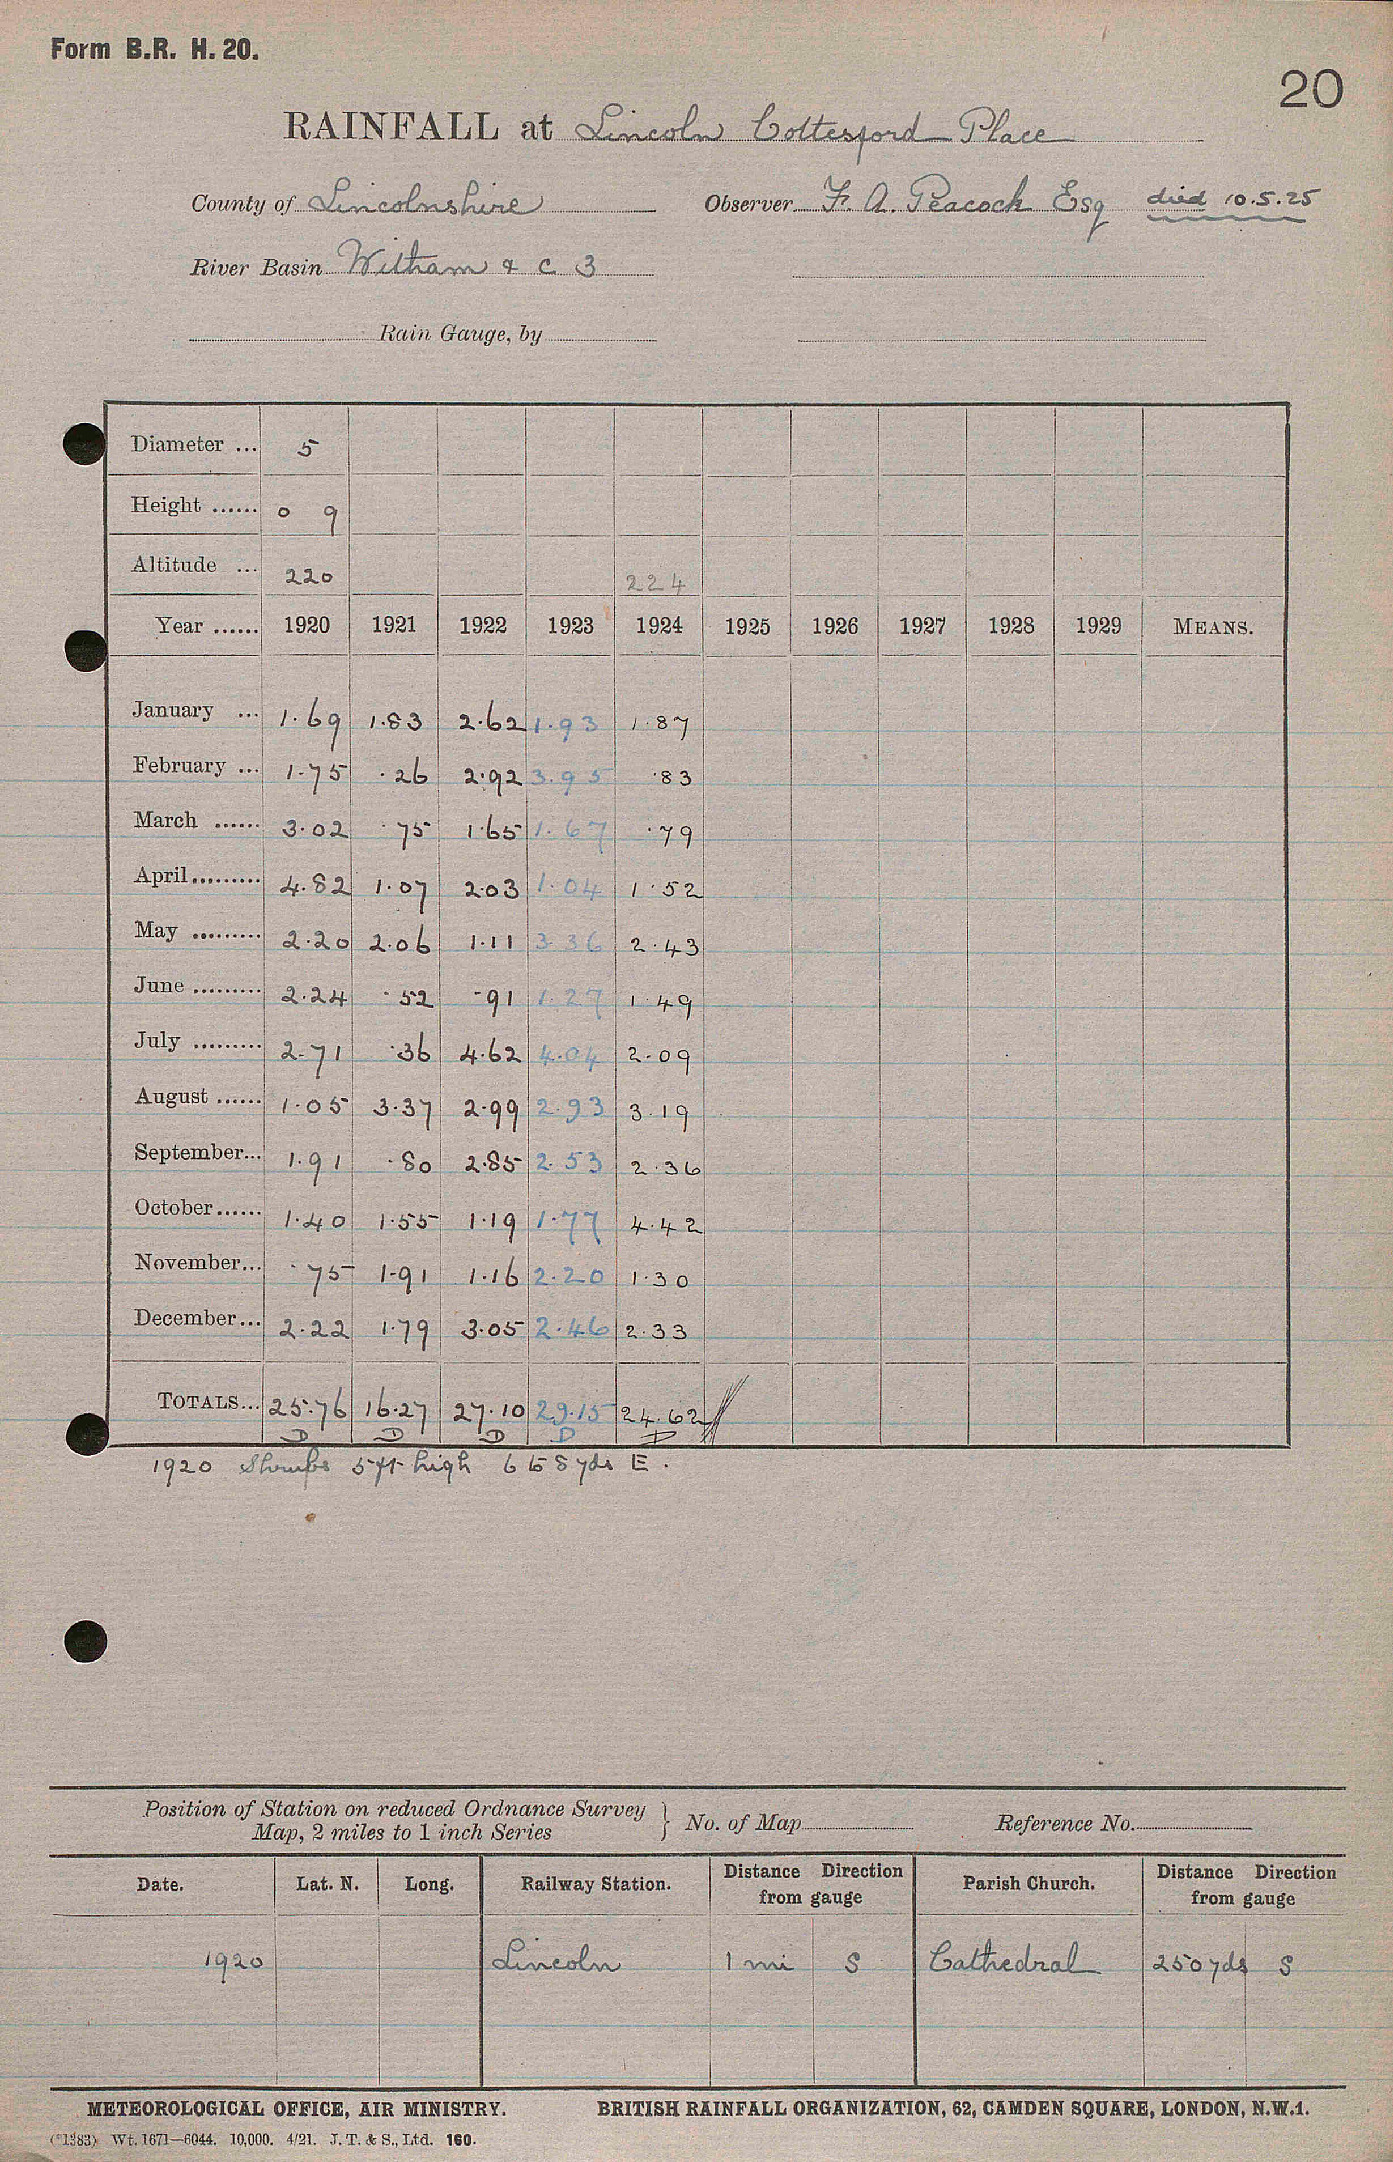 Form B.R. H. 20.
20
RAINFALL at Lincoln Cottesford Place
County of Lincolnshire Observer F. A. Peacock Esq died 10.5.25
River Basin Witham & C 3
Rain Gauge, by
Diameter ... 5
Height ...... 0 9
Altitude ... 220 224
Year ...... 1920 1921 1922 1923 1924 1925 1926 1927 1928 1929 MEANS.
January ... 1.69 1.83 2.62 1.93 1.87
February ... 1.75 .26 2.92 3.95 .83
March ...... 3.02 .75 1.65 1.67 .79
April ......... 4.82 1.07 2.03 1.04 1.52
May ......... 2.20 2.06 1.11 3.36 2.43
June ......... 2.24 .52 .91 1.27 1.49
July ......... 2.71 .36 4.62 4.04 2.09
August ...... 1.05 3.37 2.99 2.93 3.19
September... 1.91 .80 2.85 2.53 2.36
October...... 1.40 1.55 1.19 1.77 4.42
November... .75 1.91 1.16 2.20 1.30
December... 2.22 1.79 3.05 2.46 2.33
TOTALS... 25.76 16.27 27.10 29.15 24.62
D D D D D
1920 Shrubs 5ft high 6 to 8 yds E.
Position of Station on reduced Ordnance Survey
Map, 2 miles to 1 inch Series } No. of Map Reference No.
Date. Lat. N. Long. Railway Station. Distance Direction from gauge Parish Church. Distance Direction from gauge
1920 Lincoln 1 mi S Cathedral 250 yds S
METEOROLOGICAL OFFICE, AIR MINISTRY. BRITISH RAINFALL ORGANIZATION, 62, CAMDEN SQUARE, LONDON, N.W.1.
(*1383) Wt. 1671—6044. 10,000. 4/21. J. T. & S., Ltd. 160.